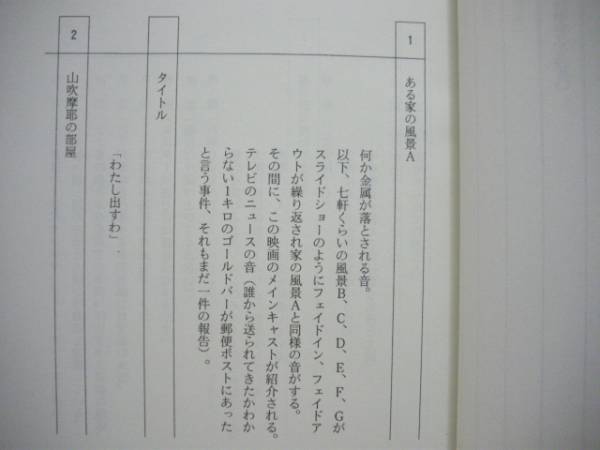 1
ある家の風景A
何か金属が落とされる音。
以下、七軒くらいの風景B、C、D、E、F、Gが
スライドショーのようにフェイドイン、フェイドア
ウトが繰り返され家の風景Aと同様の音がする。
その間に、この映画のメインキャストが紹介される。
テレビのニュースの音（誰から送られてきたかわか
らない1キロのゴールドバーが郵便ポストにあった
と言う事件、それもまだ一件の報告）。
タイトル
「わたし出すわ」
2
山吹摩耶の部屋